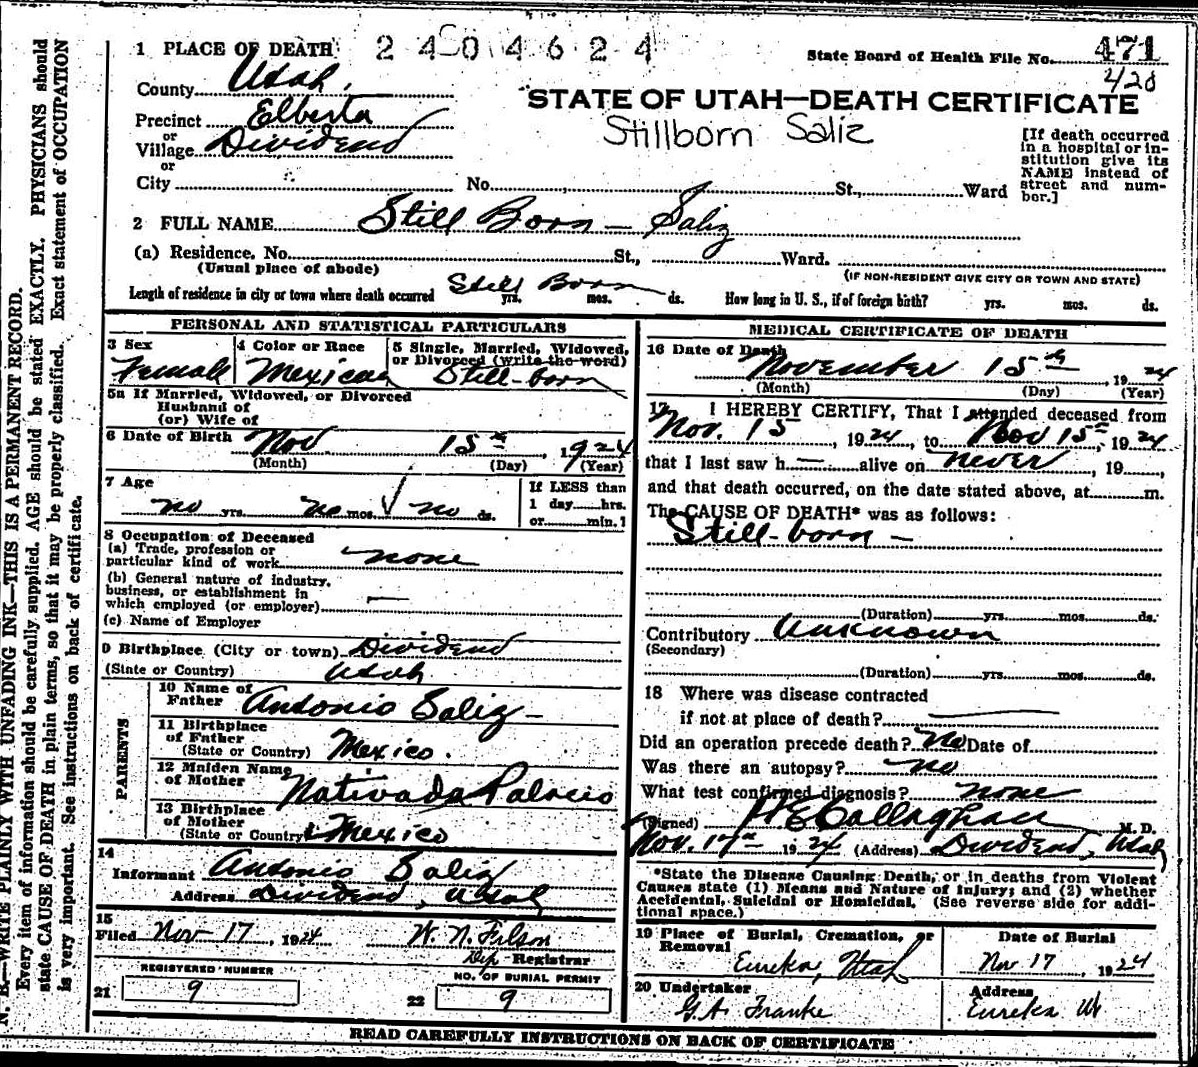 1 PLACE OF DEATH 2404624 State Board of Health File No. 471
420
County Utah,
STATE OF UTAH—DEATH CERTIFICATE
Precinct Elberta
Stillborn Saliz
or
Village Dividend
or
City No. St., Ward
[If death occurred
in a hospital or in-
stitution give its
NAME instead of
street and num-
ber.]
2 FULL NAME Still Born — Saliz
(a) Residence. No. St., Ward.
(Usual place of abode) (IF NON-RESIDENT GIVE CITY OR TOWN AND STATE)
Length of residence in city or town where death occurred Still Born yrs. mos. ds. How long in U. S., if of foreign birth? yrs. mos. ds.
PERSONAL AND STATISTICAL PARTICULARS
3 Sex 4 Color or Race 5 Single, Married, Widowed,
or Divorced (write the word)
Female Mexican Still-born
5a If Married, Widowed, or Divorced
Husband of
(or) Wife of
6 Date of Birth Nov 15th, 1924
(Month) (Day) (Year)
7 Age If LESS than
1 day hrs.
or min.?
no yrs. no mos. no ds.
8 Occupation of Deceased
(a) Trade, profession or
particular kind of work none
(b) General nature of industry,
business, or establishment in
which employed (or employer) —
(c) Name of Employer
9 Birthplace (City or town) Dividend
(State or Country) Utah
PARENTS
10 Name of
Father Antonio Saliz —
11 Birthplace
of Father
(State or Country) Mexico.
12 Maiden Name
of Mother Nativada Palacio
13 Birthplace
of Mother
(State or Country) Mexico
14
Informant Antonio Saliz
Address Dividend, Utah
15
Filed Nov 17, 1924 W. N. Filson
Dep. Registrar
REGISTERED NUMBER NO. OF BURIAL PERMIT
21 9 22 9
MEDICAL CERTIFICATE OF DEATH
16 Date of Death
November 15th, 1924
(Month) (Day) (Year)
17 I HEREBY CERTIFY, That I attended deceased from
Nov. 15, 1924, to Nov 15th, 1924
that I last saw h — alive on never, 19 ,
and that death occurred, on the date stated above, at m.
The CAUSE OF DEATH* was as follows:
Still-born —
(Duration) yrs. mos. ds.
Contributory Unknown
(Secondary)
(Duration) yrs. mos. ds.
18 Where was disease contracted
if not at place of death? —
Did an operation precede death? No Date of
Was there an autopsy? no
What test confirmed diagnosis? none
(Signed) Callaghan M. D.
Nov. 17th 1924 (Address) Dividend, Utah
*State the Disease Causing Death, or in deaths from Violent
Causes state (1) Means and Nature of Injury; and (2) whether
Accidental, Suicidal or Homicidal. (See reverse side for addi-
tional space.)
19 Place of Burial, Cremation, or
Removal
Date of Burial
Eureka, Utah Nov 17, 1924
20 Undertaker Address
G.A. Franke Eureka Ut
READ CAREFULLY INSTRUCTIONS ON BACK OF CERTIFICATE
N. B.—WRITE PLAINLY WITH UNFADING INK—THIS IS A PERMANENT RECORD.
Every item of information should be carefully supplied. AGE should be stated EXACTLY. PHYSICIANS should
state CAUSE OF DEATH in plain terms, so that it may be properly classified. Exact statement of OCCUPATION
is very important. See instructions on back of certificate.